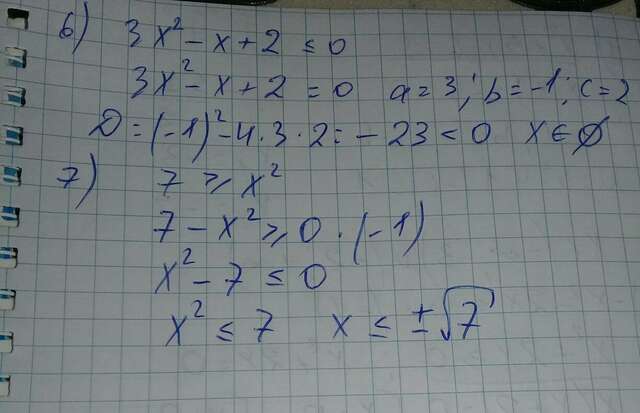 6) 3x² - x + 2 ≤ 0
3x² - x + 2 = 0 a = 3; b = -1; c = 2
D = (-1)² - 4 · 3 · 2 = - 23 < 0 x ∈ ∅
7) 7 ≥ x²
7 - x² ≥ 0 · (-1)
x² - 7 ≤ 0
x² ≤ 7 x ≤ ±√7